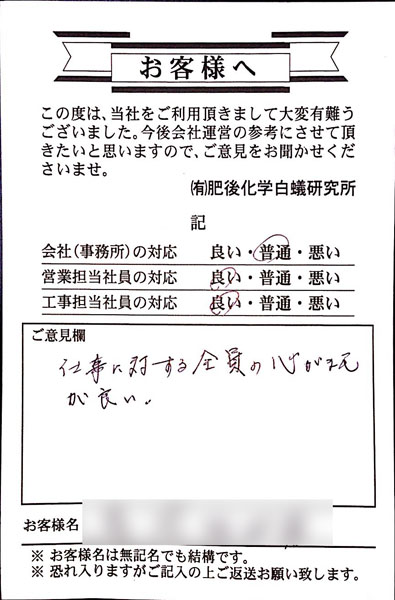 お客様へ
この度は、当社をご利用頂きまして大変有難う
ございました。今後会社運営の参考にさせて頂
きたいと思いますので、ご意見をお聞かせくだ
さいませ。
㈲肥後化学白蟻研究所
記
会社(事務所)の対応 良い・普通・悪い
営業担当社員の対応 良い・普通・悪い
工事担当社員の対応 良い・普通・悪い
ご意見欄
仕事に対する全員の心がまえ
が良い。
お客様名
※ お客様名は無記名でも結構です。
※ 恐れ入りますがご記入の上ご返送お願い致します。